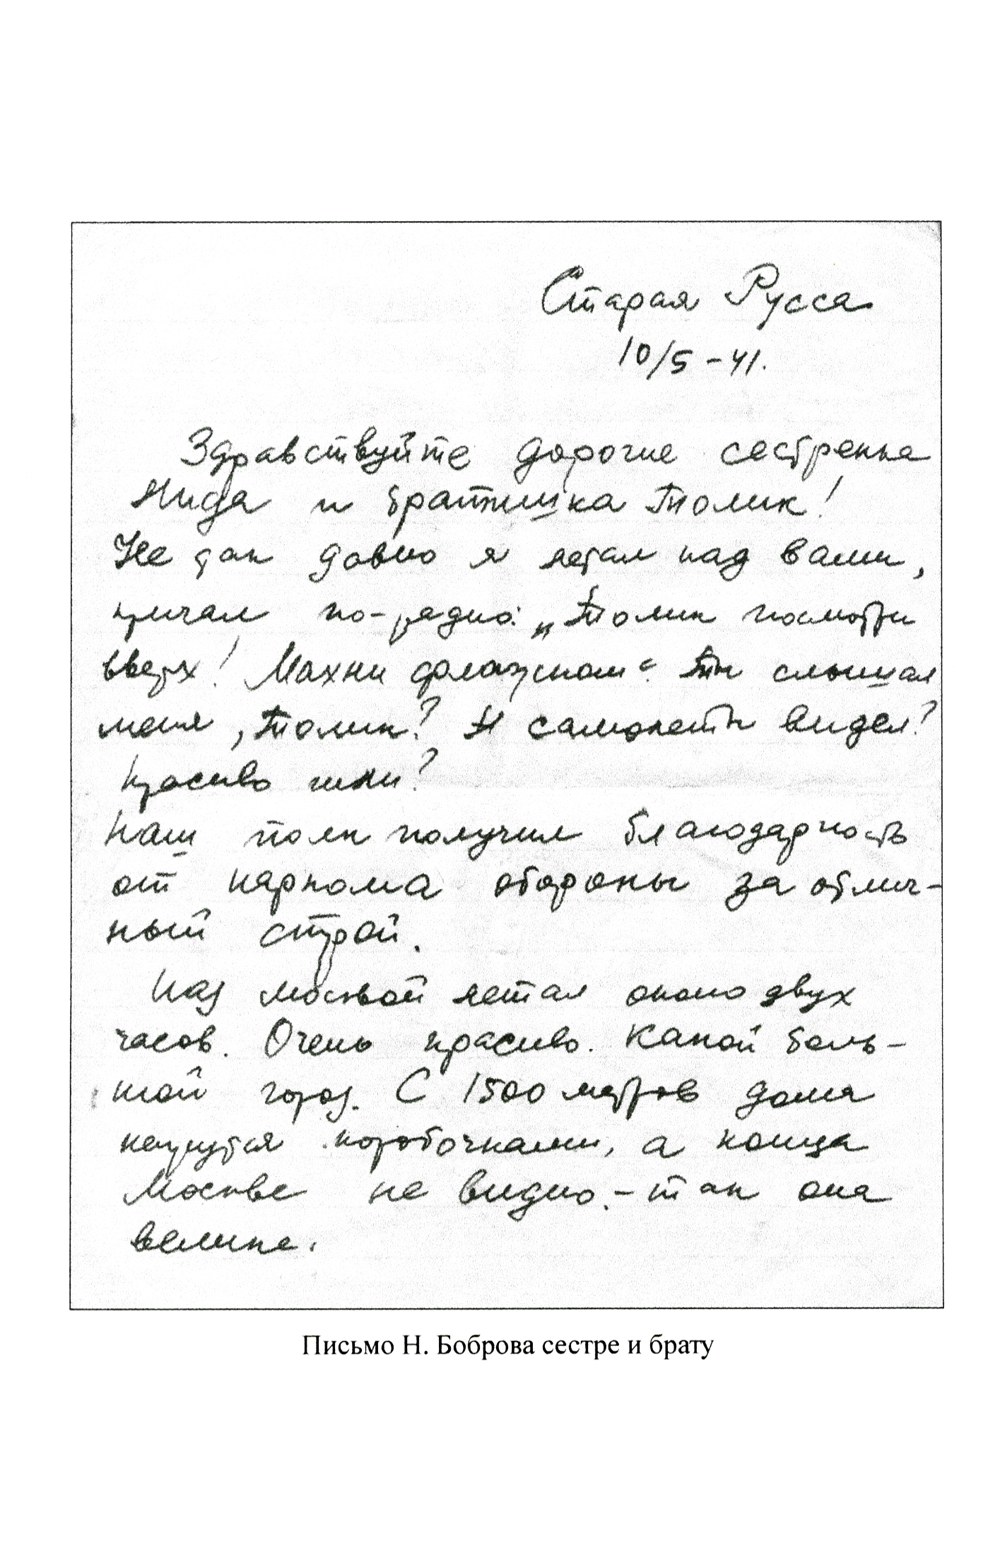 Старая Русса
10/5 – 41.
Здравствуйте дорогие сестренка
Лида и братишка Толик!
Не так давно я летал над вами,
кричал по-радио: „Толик посмотри
вверх! Махни флажком“. Ты слышал
меня, Толик? И самолеты видел?
Красиво шли?
Наш полк получил благодарность
от наркома обороны за отлич-
ный строй.
Над Москвой летал около двух
часов. Очень красиво. Какой боль-
шой город. С 1500 метров дома
кажутся коробочками, а конца
Москве не видно. – так она
велика.
Письмо Н. Боброва сестре и брату